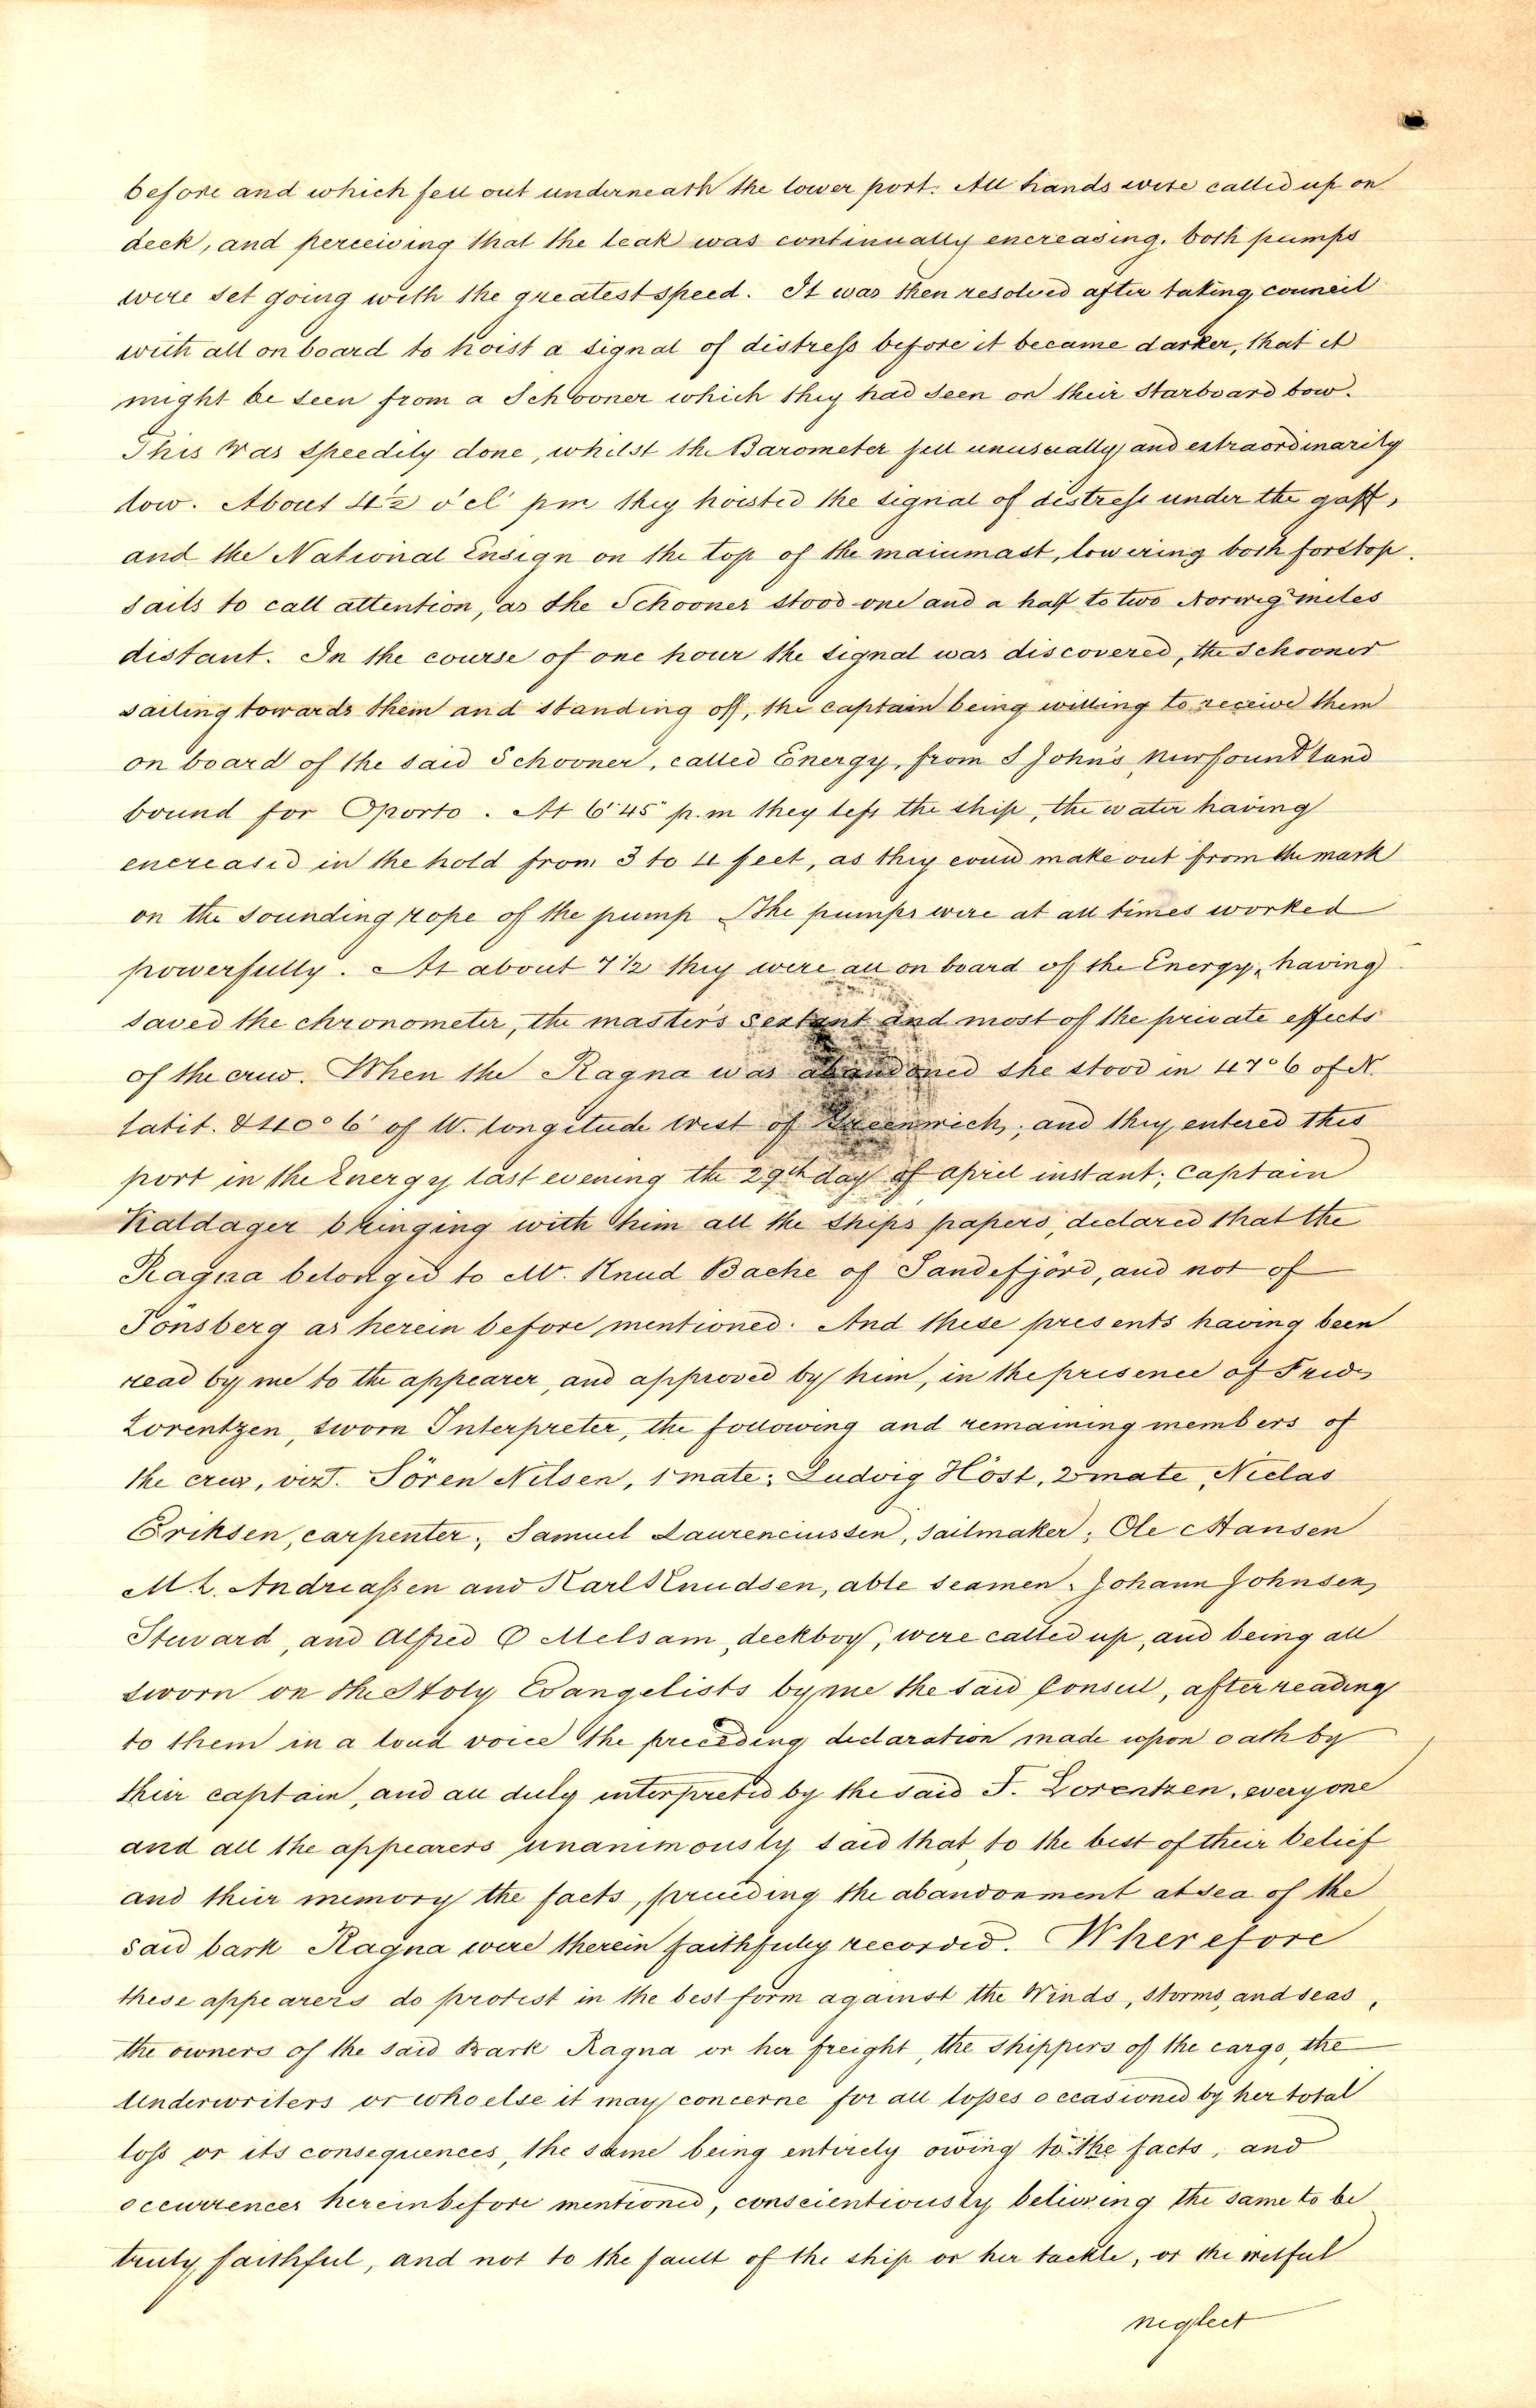 before and which fell out underneath the lower port. All hands were called up on
deck, and perceiving that the leak was continually encreasing, both pumps
were set going with the greatest speed. It was then resolved after taking council
with all on board to hoist a signal of distress before it became darker, that it
might be seen from a Schooner which they had seen on their Starboard bow.
This was speedily done, whilst the Barometer fell unusually and extraordinarily
low. About 4½ o'cl' pm they hoisted the signal of distress under the gaff,
and the National Ensign on the top of the mainmast, lowering both forstop
sails to call attention, as the Schooner stood one and a half to two Norwegn miles
distant. In the course of one hour the signal was discovered, the Schooner
sailing towards them and standing off, the captain being willing to receive them
on board of the said Schooner, called Energy, from S John's Newfoundland
bound for Oporto. At 6'45" p.m they left the ship, the water having
encreased in the hold from 3 to 4 feet, as they could make out from the mark
on the sounding rope of the pump The pumps were at all times worked
powerfully. At about 7½ they were all on board of the Energy, having
saved the chronometer, the master's sextant and most of the private effects
of the crew. When the Ragna was abandoned she stood in 47°6 of N.
latit. & 40°6' of W. longitude West of Greenwich; and they entered this
port in the Energy last evening the 29th day of april instant; captain
Kaldager bringing with him all the ships papers, declared that the
Ragna belonged to Mr. Knud Bache of Sandefjörd, and not of
Tönsberg as herein before mentioned. And these presents having been
read by me to the appearer, and approved by him, in the presence of Frid
Lorentzen, sworn Interpreter, the following and remaining members of
the crew, vizt. Sören Nilsen, 1 mate; Ludvig Höst, 2 mate, Niclas
Eriksen, carpenter; Samuel Laurenciussen, sailmaker; Ole Hansen
M. L. Andreassen and Karl Knudsen, able seamen, Johann Johnsen,
Steward, and Alfred O Melsam, deckboy, were called up, and being all
sworn on the Holy Evangelists by me the said Consul, after reading
to them in a loud voice the preceding declaration made upon oath by
their captain, and all duly interpreted by the said F. Lorentzen, every one
and all the appearers unanimously said that, to the best of their belief
and their memory the facts, preceding the abandonment at sea of the
said bark Ragna were therein faithfully recorded. Wherefore
these appearers do protest in the best form against the Winds, storms, and seas,
the owners of the said Bark Ragna or her freight, the shippers of the cargo, the
Underwriters or who else it may concerne for all losses occasioned by her total
loss or its consequences, the same being entirely owing to the facts, and
occurrences hereinbefore mentioned, conscientiously believing the same to be
truly faithful, and not to the fault of the ship or her tackle, or the wilful
neglect